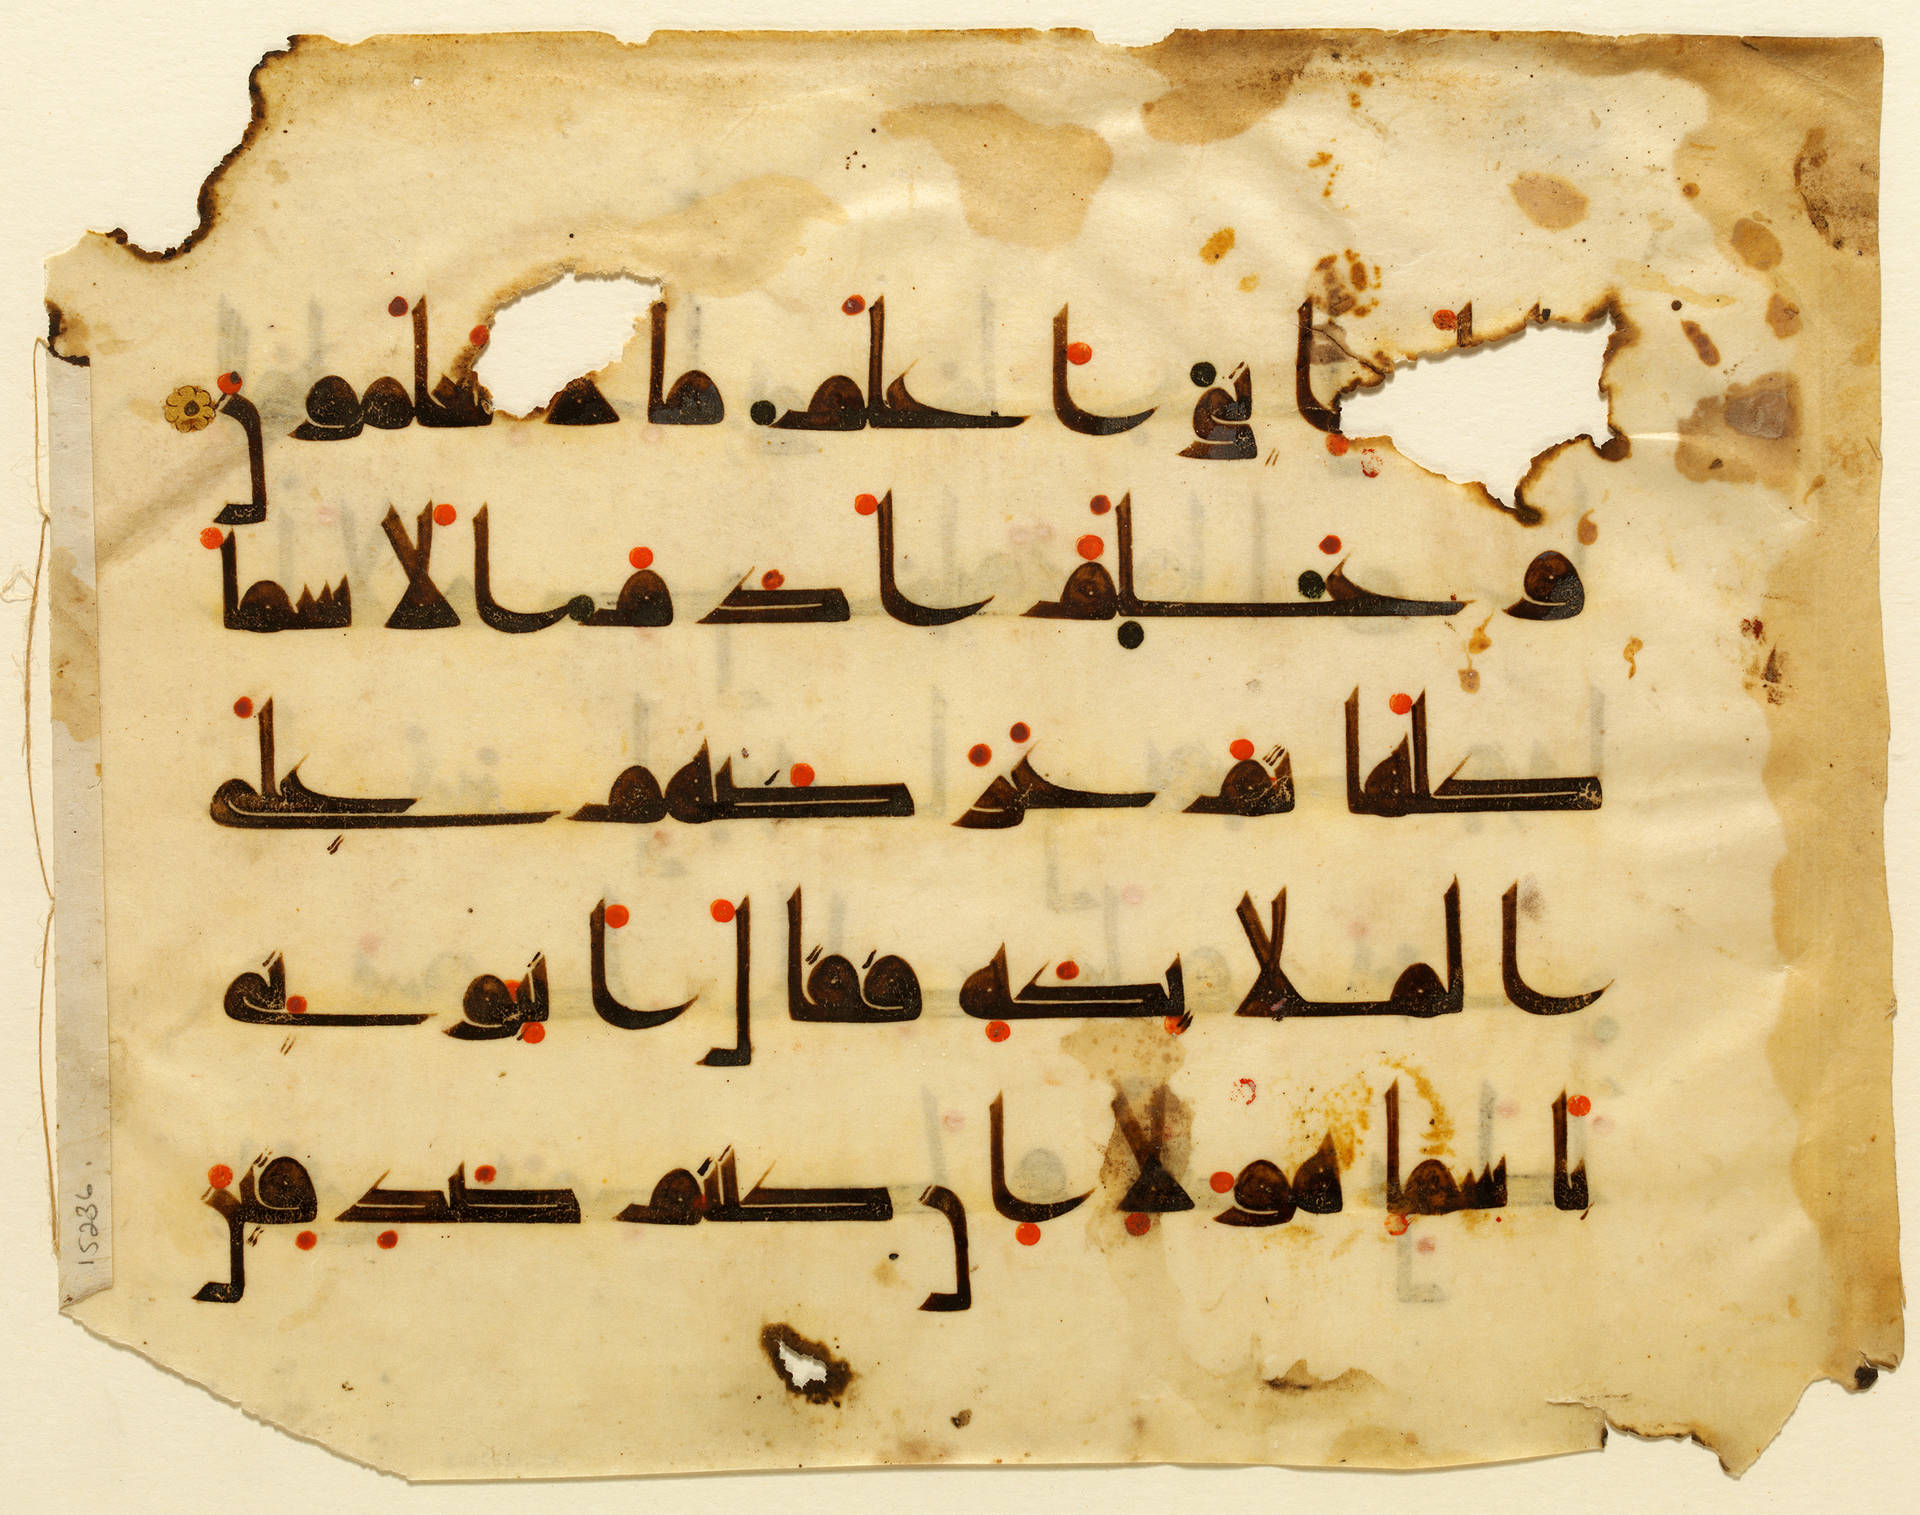 اني اعلم ما لا تعلمون
و علم ادم الاسما
كلها ثم عرضهم على
الملئكه فقال انبوني
باسما هولا ان كنتم صدقين
15236.